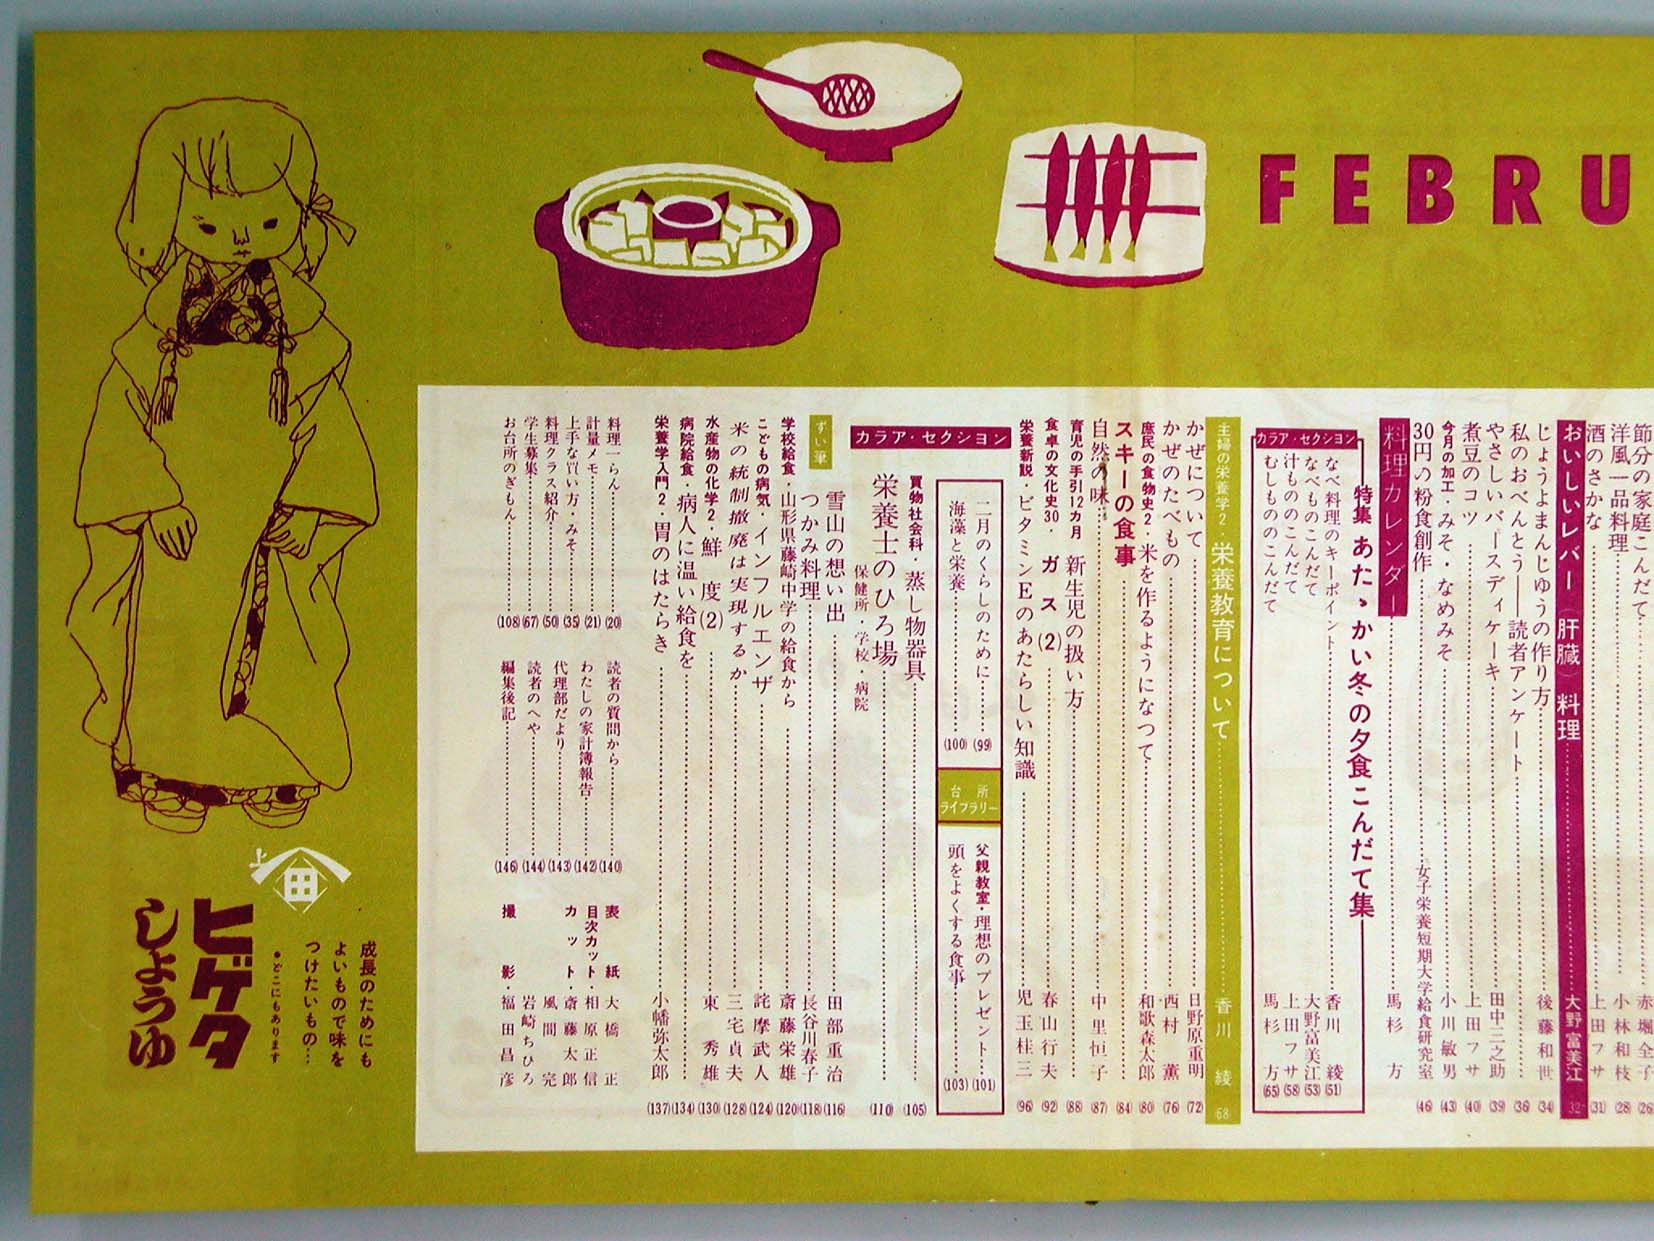 FEBRU
節分の家庭こんだて 赤堀全子 (26)
洋風一品料理 小林和枝 (28)
酒のさかな 上田フサ (31)
おいしいレバー(肝臓)料理 大野富美江 32
じょうよまんじゅうの作り方 後藤和世 (34)
私のおべんとう――読者アンケート (36)
やさしいバースディケーキ 田中三之助 (39)
煮豆のコツ 上田フサ (40)
今月の加工・みそ・なめみそ 小川敏男 (43)
30円の粉食創作 女子栄養短期大学給食研究室 (46)
料理カレンダー 馬杉方
特集 あたゝかい冬の夕食こんだて集
カラア・セクション
なべ料理のキーポイント 香川綾 (51)
なべものこんだて 大野富美江 (53)
汁もののこんだて 上田フサ (58)
むしもののこんだて 馬杉方 (65)
主婦の栄養学2・栄養教育について 香川綾 68
かぜについて 日野原重明 (72)
かぜのたべもの 西村薫 (76)
庶民の食物史2・米を作るようになつて 和歌森太郎 (80)
スキーの食事 (84)
自然の味 中里恒子 (87)
育児の手引12カ月 新生児の扱い方 (88)
食卓の文化史30・ガス(2) 春山行夫 (92)
栄養新説・ビタミンEのあたらしい知識 児玉桂三 (96)
カラア・セクション
二月のくらしのために (99)
海藻と栄養 (100)
台所ライブラリー
父親教室・理想のプレゼント (101)
頭をよくする食事 (103)
買物社会科・蒸し物器具 (105)
栄養士のひろ場 (110)
保健所・学校・病院
ずい筆
雪山の想い出 田部重治 (116)
つかみ料理 長谷川春子 (118)
学校給食・山形県藤崎中学の給食から 斎藤栄雄 (120)
こどもの病気・インフルエンザ 詫摩武人 (124)
米の統制撤廃は実現するか 三宅貞夫 (128)
水産物の化学2・鮮度(2) 東秀雄 (130)
病院給食・病人に温い給食を (134)
栄養学入門2・胃のはたらき 小幡弥太郎 (137)
料理一らん (20)
計量メモ (21)
上手な買い方・みそ (35)
料理クラス紹介 (50)
学生募集 (67)
お台所のぎもん (108)
読者の質問から (140)
わたしの家計簿報告 (142)
代理部だより (143)
読者のへや (144)
編集後記 (146)
表紙 大橋正
目次カット・相原正信
カット・斎藤太郎
風間完
岩崎ちひろ
撮影・福田昌彦
成長のためにも
よいもので味を
つけたいもの…
●どこにもあります
上
田
ヒゲタ
しょうゆ